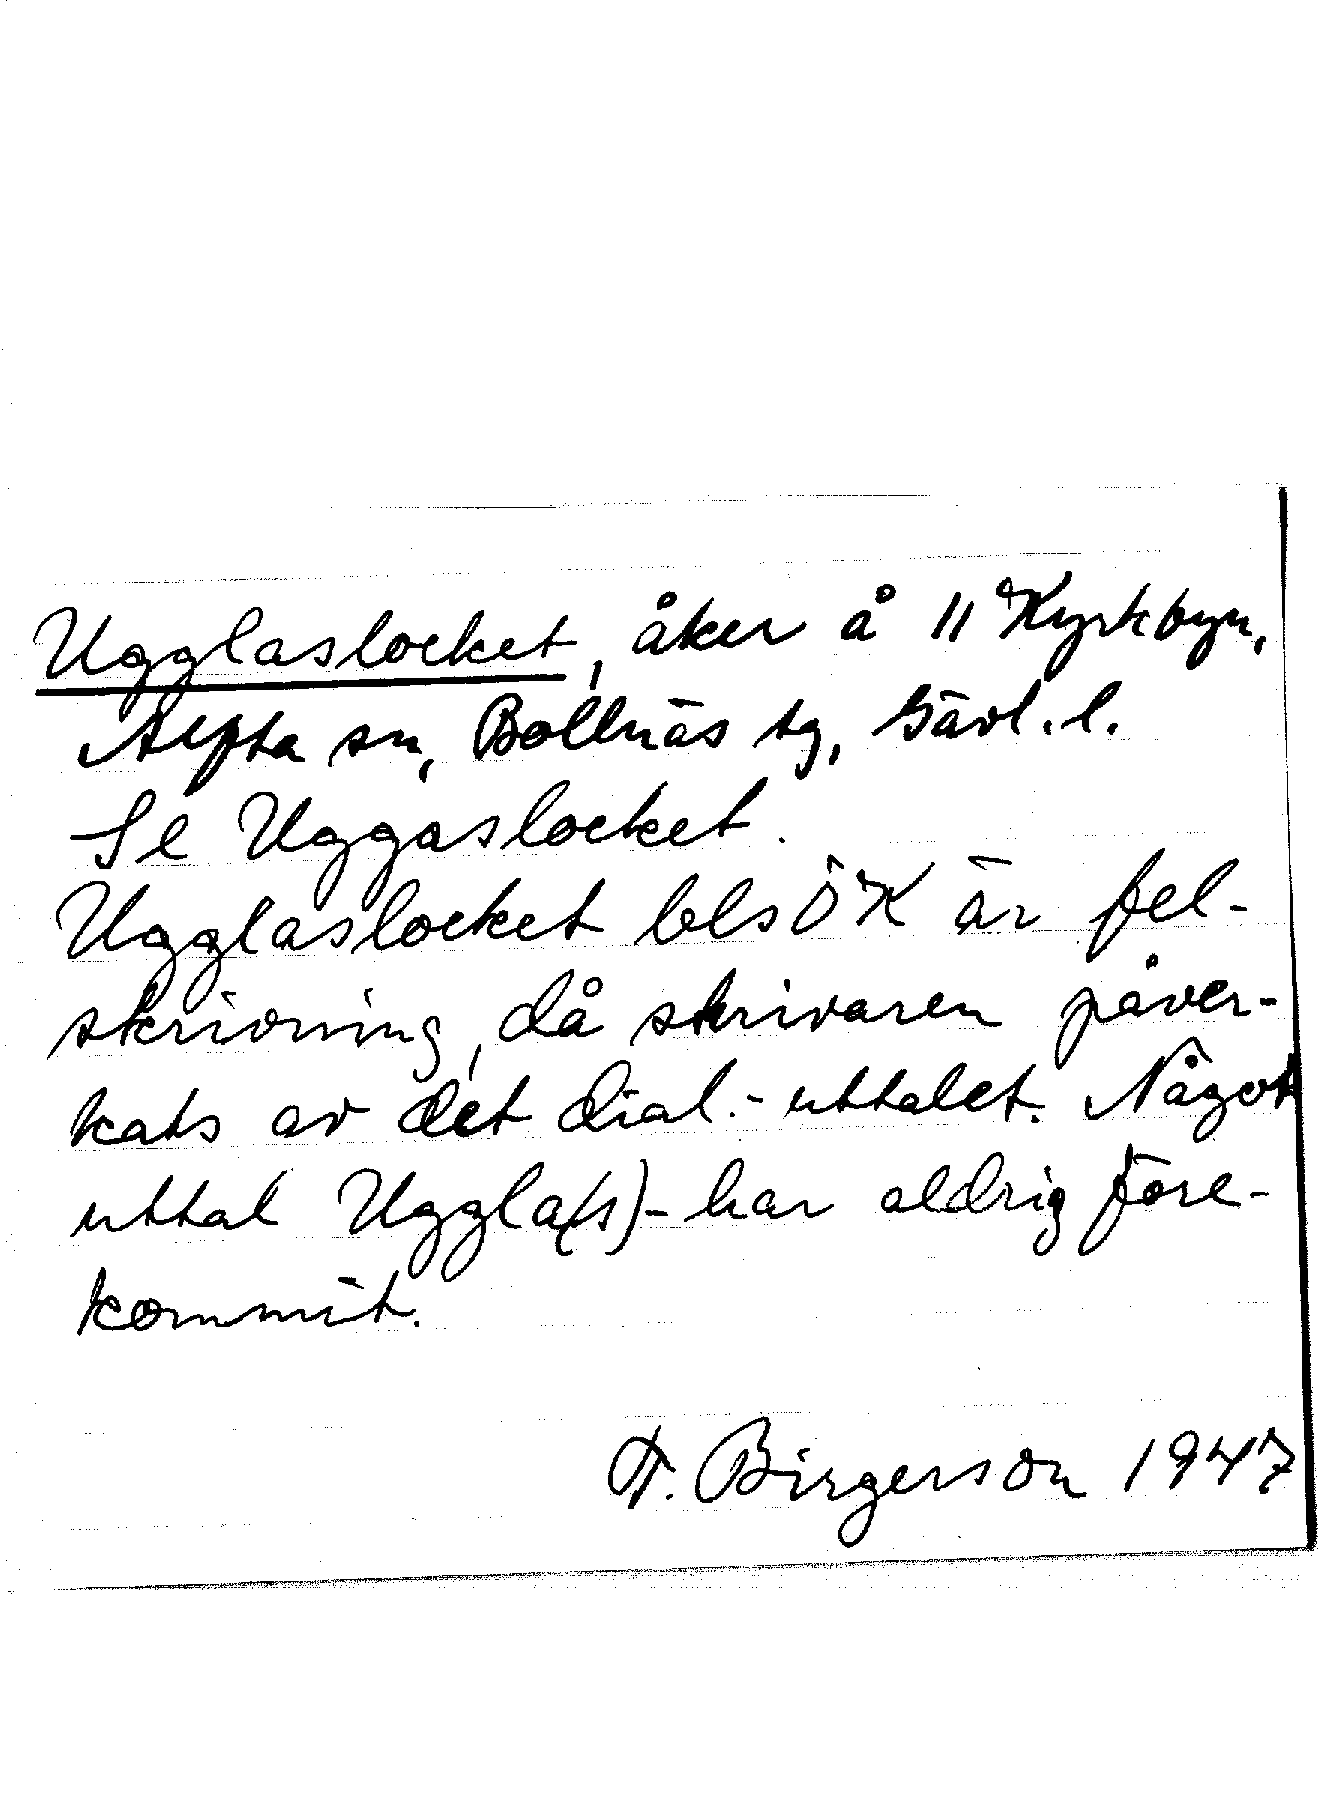 Ugglaslocket, åker å 11 Kyrkbyn,
Alfta sn, Bollnäs tg, Gävl. l.
Se Uggaslocket.
Ugglaslocket bls ÖK är fel-
skrivning, då skrivaren påver-
kats av det dial.- uttalet. Något
uttal Uggla(s)- har aldrig före-
kommit.
F. Birgerson 1947